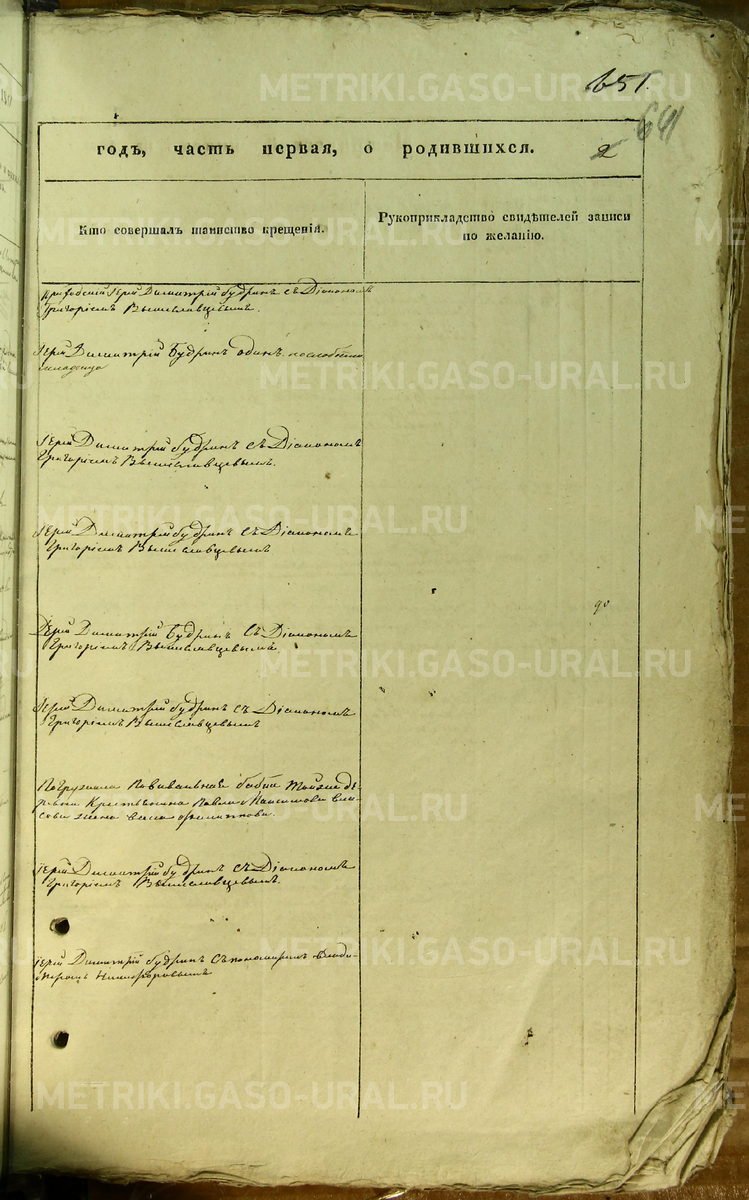 651.
641
годъ, часть первая, о родившихся. 2
Кто совершалъ таинство крещенія.
Рукоприкладство свидѣтелей записи
по желанію.
Приходскій Іерей Димитрій Будринъ съ Діакономъ
Григоріемъ Вышеславцевымъ.
Іерей Димитрій Будринъ одинъ по слабости
младенца
Іерей Димитрій Будринъ съ Діакономъ
Григоріемъ Вышеславцевымъ.
Іерей Димитрій Будринъ съ Діакономъ
Григоріемъ Вышеславцевымъ
Іерей Димитрій Будринъ съ Діакономъ
Григоріемъ Вышеславцевымъ.
Іерей Димитрій Будринъ съ Діакономъ
Григоріемъ Вышеславцевымъ
Погружала Повивальная бабка тойже де-
ревни Крестьянина Павла Максимова
жена
Іерей Димитрій Будринъ съ Діакономъ
Григоріемъ Вышеславцевымъ.
Іерей Димитрій Будринъ съ пономаремъ
Никифоровымъ
METRIKI.GASO-URAL.RU